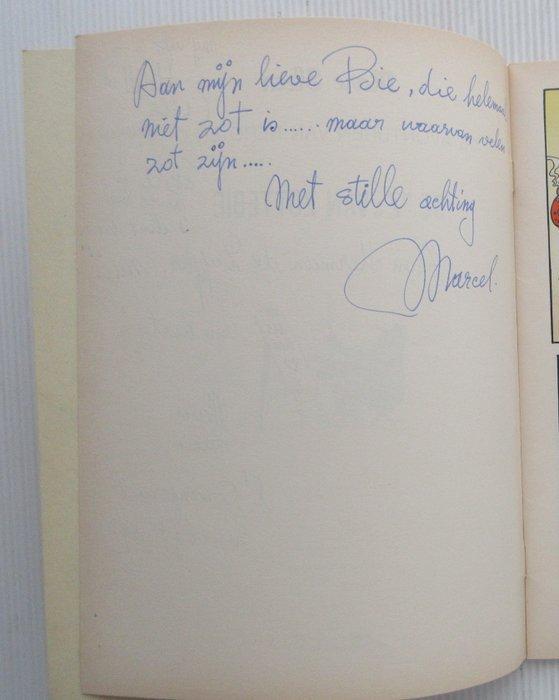 Aan mijn lieve Bie, die helemaal
niet zot is...... maar waarvan velen
zot zijn.....
Met stille achting
Marcel.